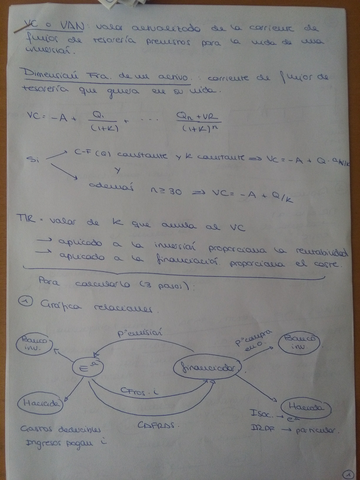 VC o VAN: valor actualizado de la corriente de
flujos de tesorería previstos para la vida de una
inversión.
Dimensión Fra de un activo: corriente de flujos de
tesorería que genera en su vida.
VC = -A + Q1/(1+K) + ... Qn + VR/(1+K)^n
Si
C-F (Q) constante y K constante ⇒ VC = -A + Q ·
y
además n ≥ 30 ⇒ VC = -A + Q/K
TIR = valor de K que anula al VC
→ aplicado a la inversión proporciona la rentabilidad
→ aplicado a la financiación proporciona el coste
Para calcularlo (3 pasos)
① Gráfica relaciones
Banco inv.
P. emisión
P. compra
Banco inv.
financiador
Hacienda
CFTOS. i
COBROS
Hacienda
ISoc. →
IRPF → particular.
Gastos deducibles
Ingresos pagan i
1